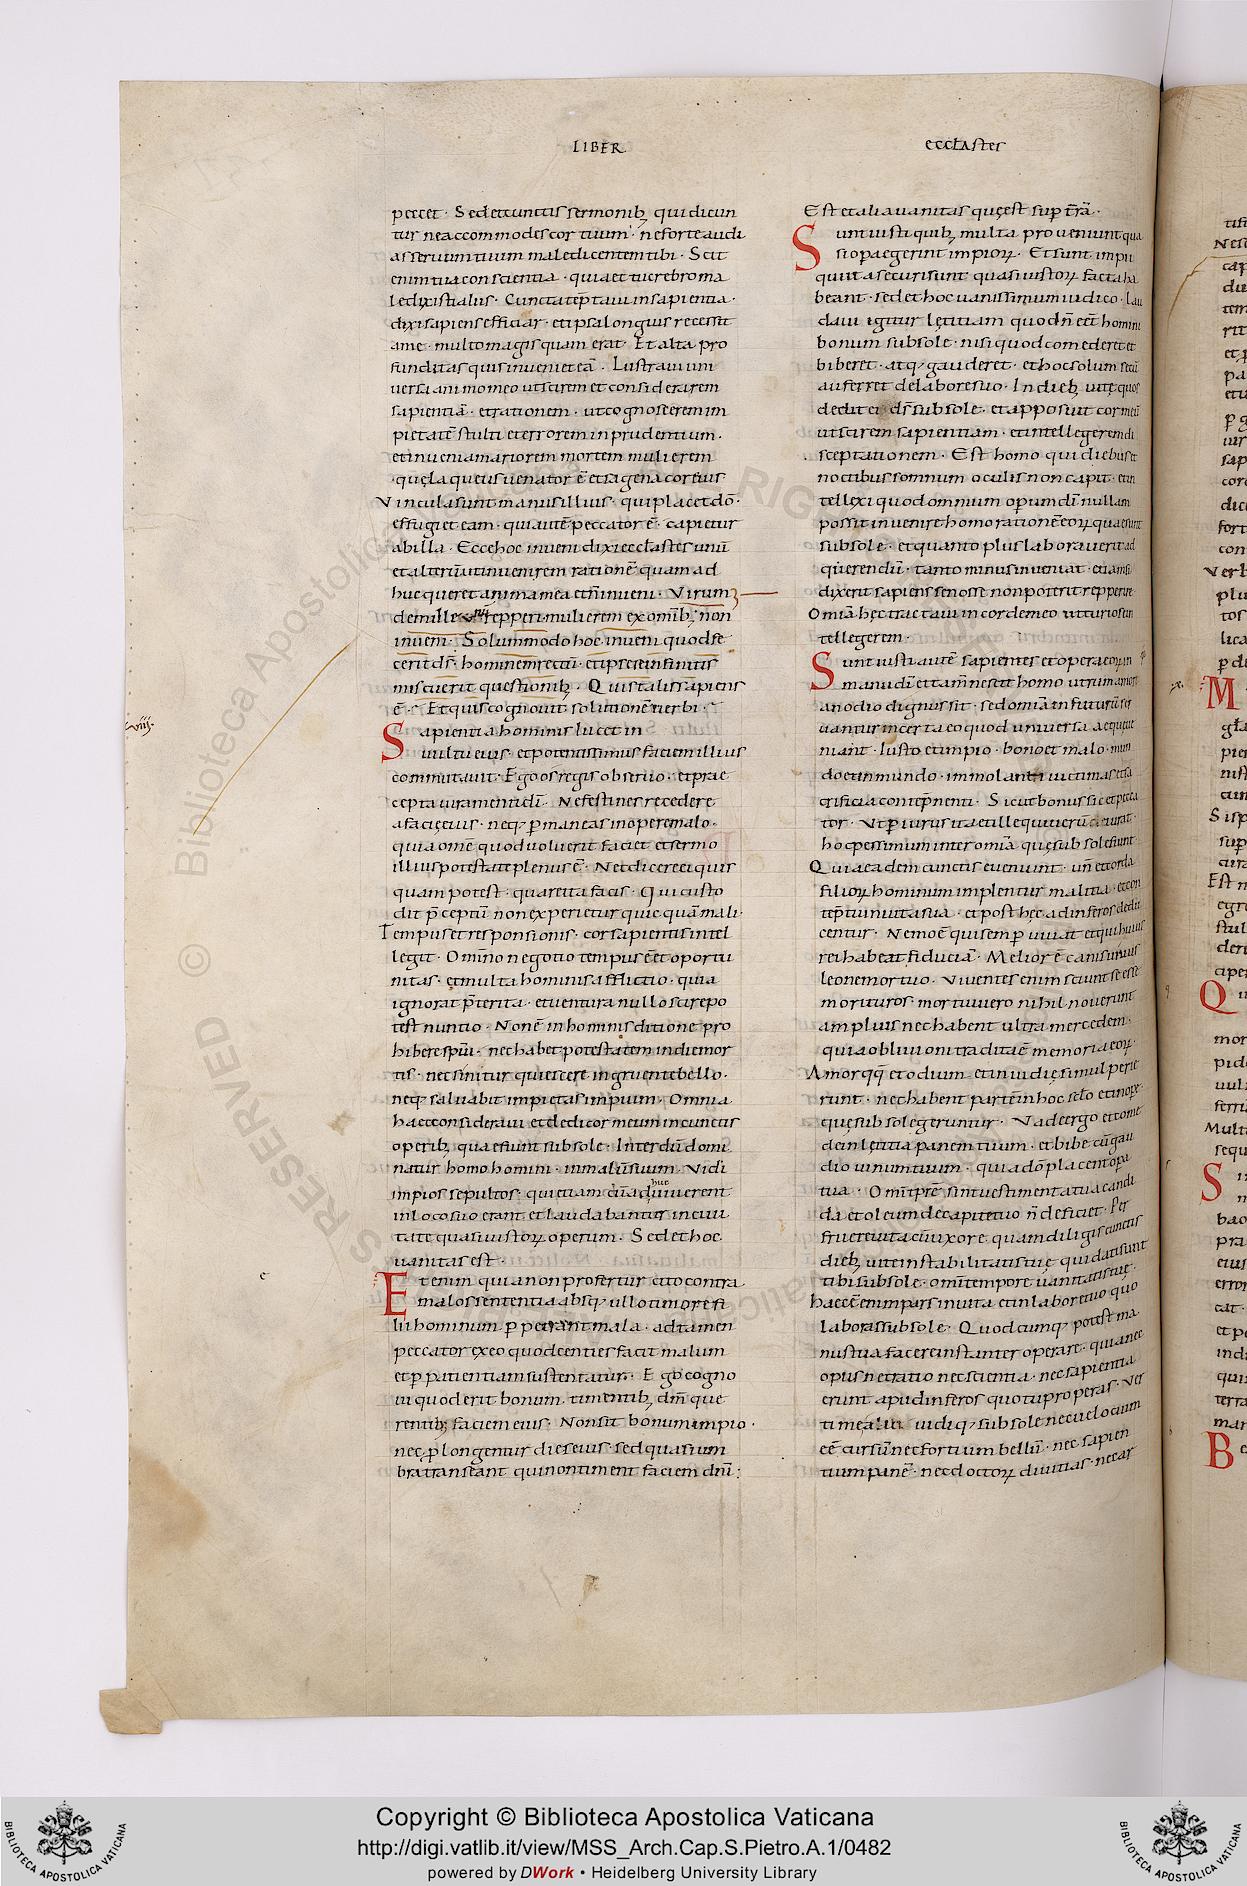 LIBER
peccet · Sed et cunctis sermonibꝫ qui dicun
tur ne accommodes cor tuum · ne forte audi
as seruum tuum maledicentem tibi · Scit
enim tua conscientia · quia et tu crebro ma
ledixisti aliis · Cuncta tēptaui in sapientia ·
dixi sapiens efficiar · et ipsa longius recessit
a me · multo magis quam erat · Et alta pro
funditas quis inueniet eā · Lustraui uni
uersa animo meo ut scirem et considerarem
sapientiā · et rationem · ut cognoscerem im
pietatē stulti et errorem inprudentium ·
et inueni amariorem mortem mulierem
quę laqueus uenatorē ē et sagena cor eius ·
Vincula sunt manus illius · qui placet dō ·
effugiet eam · qui autē peccator ē · capietur
ab illa · Ecce hoc inueni dixi eccl̄astes unū
et alterū ut inuenirem rationē quam ad
huc querit anima mea et n̄ inueni · Virum
de mille repperi · mulierem ex omībꝫ non
inueni · Solummodo hoc inueni quod fe
cerit d̄s · hominem rectū · et ipse se infinitis
miscuerit questionibꝫ · Quis talis sapiens
ē · Et quis cognouit solutionē uerbi ·
Sapientia hominis lucet in
uultu eius · et potentissimus faciem illius
commutauit · Ego os regis obseruo · et prae
cepta iuramenti dī · Ne festines recedere
a facię eius · neqꝫ ꝑmaneas in opere malo ·
quia omē quod uoluerit faciet et sermo
illius potestate plenus ē · Nec dicere ei quis
quam potest · quare ita facis · Qui custo
dit p̄ceptū non experietur quicquā mali ·
Tempus et responsionis · cor sapientis intel
legit · Omīno negotio tempus ē et oportu
nitas · et multa hominis afflictio · quia
ignorat p̄terita · et uentura nullo scire po
test nuntio · Non ē in hominis ditione pro
hibere sp̄m · nec habet potestatem in die mor
tis · nec sinitur quiescere ingruente bello ·
neqꝫ saluabit impietas impium · Omnia
haec consideraui et dedi cor meum in cunctis
operibꝫ quae fiunt sub sole · Interdū domi
natur homo homini · in malū suum · Vidi
impios sepultos · qui etiam cū adhuc uiuerent
in loco s̄co erant et laudabantur in ciui
tate quasi iustoꝝ operum · Sed et hoc
uanitas est ·
Etenim quia non profertur cito contra
malos sententia absqꝫ ullo timore fi
lii hominum ꝑpetrant mala · adtamen
peccator ex eo quod centies facit malum
et ꝑ patientiam sustentatur · Ego cogno
ui quod erit bonum timentibꝫ dm̄ que
rentibꝫ faciem eius · Non sit bonum impio ·
nec ꝓlongentur dies eius · sed quasi um
bra transeant qui non timent faciem dn̄i :
eccl̄astes
Est et alia uanitas quę est suꝑ t̄rā ·
Sunt iusti quibꝫ multa proueniunt qua
si opera egerint impioꝝ · Et sunt impii
qui ita securi sunt quasi iustoꝝ facta ha
beant · sed et hoc uanissimum iudico · Lau
daui igitur lętitiam quod n̄ eēt homini
bonum sub sole · nisi quod comederet et
biberet · atqꝫ gauderet · et hoc solum secū
auferret de labore suo · In diebꝫ uitę quos
dedit ei d̄s sub sole · et apposui cor meū
ut scirem sapientiam · et intellegerem di
sceptationem · Est homo qui diebus et
noctibus somnum oculis non capit · et in
tellexi quod omnium operum dī nullam
possit inuenire homo rationē eoꝝ quae sunt
sub sole · et quanto plus laborauerit ad
querendū · tanto minus inueniat · etiamsi
dixerit sapiens se nosse non poterit repperire
Omīa hęc tractaui in corde meo ut curiose in
tellegerem ·
Sunt iusti autē sapientes et opera eoꝝ in
manu dī et tamē nescit homo utrum amore
an odio dignus sit · sed omīa in futurū ser
uantur incerta eo quod uniuersa aeque eue
niant · Iusto et impio · bono et malo · mun
do et inmundo · immolanti uictimas et sa
crificia contēpnenti · Sicut bonus sic et pecca
tor · Vt ꝑiurus ita et ille qui uerū deierat ·
hoc pessimum inter omīa quę sub sole fiunt
Quia eadem cunctis eueniunt · un̄ et corda
filioꝝ hominum implentur malitia · et con
tēptui in uita sua · et post hęc ad inferos dedu
centur · Nemo ē qui semꝑ uiuat et qui huius
rei habeat fiduciā · Melior ē canis uiuus
leone mortuo · Viuentes enim sciunt se esse
morituros · mortui uero nihil nouerunt
amplius nec habent ultra mercedem ·
quia obliuioni tradita ē memoria eoꝝ ·
Amor qq̄ et odium · et inuidię simul perie
runt · nec habent partē in hoc sclo et in opere
quę sub sole geruntur · Vade ergo et come
de in lętitia panem tuum · et bibe cū gau
dio uinum tuum · quia dō placent opa
tua · Omī tp̄re sint uestimenta tua candi
da et oleum de capite tuo n̄ deficiet · Per
fruere uita cū uxore quam diligis cunctis
diebꝫ uitę instabilitatis tuę qui dati sunt
tibi sub sole · omī tempore uanitatis tuę ·
Haec ē enim pars in uita et in labore tuo quo
laboras sub sole · Quodcumqꝫ potest ma
nus tua facere instanter operare · quia nec
opus nec ratio nec scientia · nec sapientia
erunt apud inferos quo tu properas · Ver
ti me aliu uidiqꝫ sub sole nec uelocium
eē cursū nec fortium bellū · nec sapien
tium panē · nec doctoꝝ diuitias · nec ar
viii ·
Copyright © Biblioteca Apostolica Vaticana
http://digi.vatlib.it/view/MSS_Arch.Cap.S.Pietro.A.1/0482
powered by DWork • Heidelberg University Library